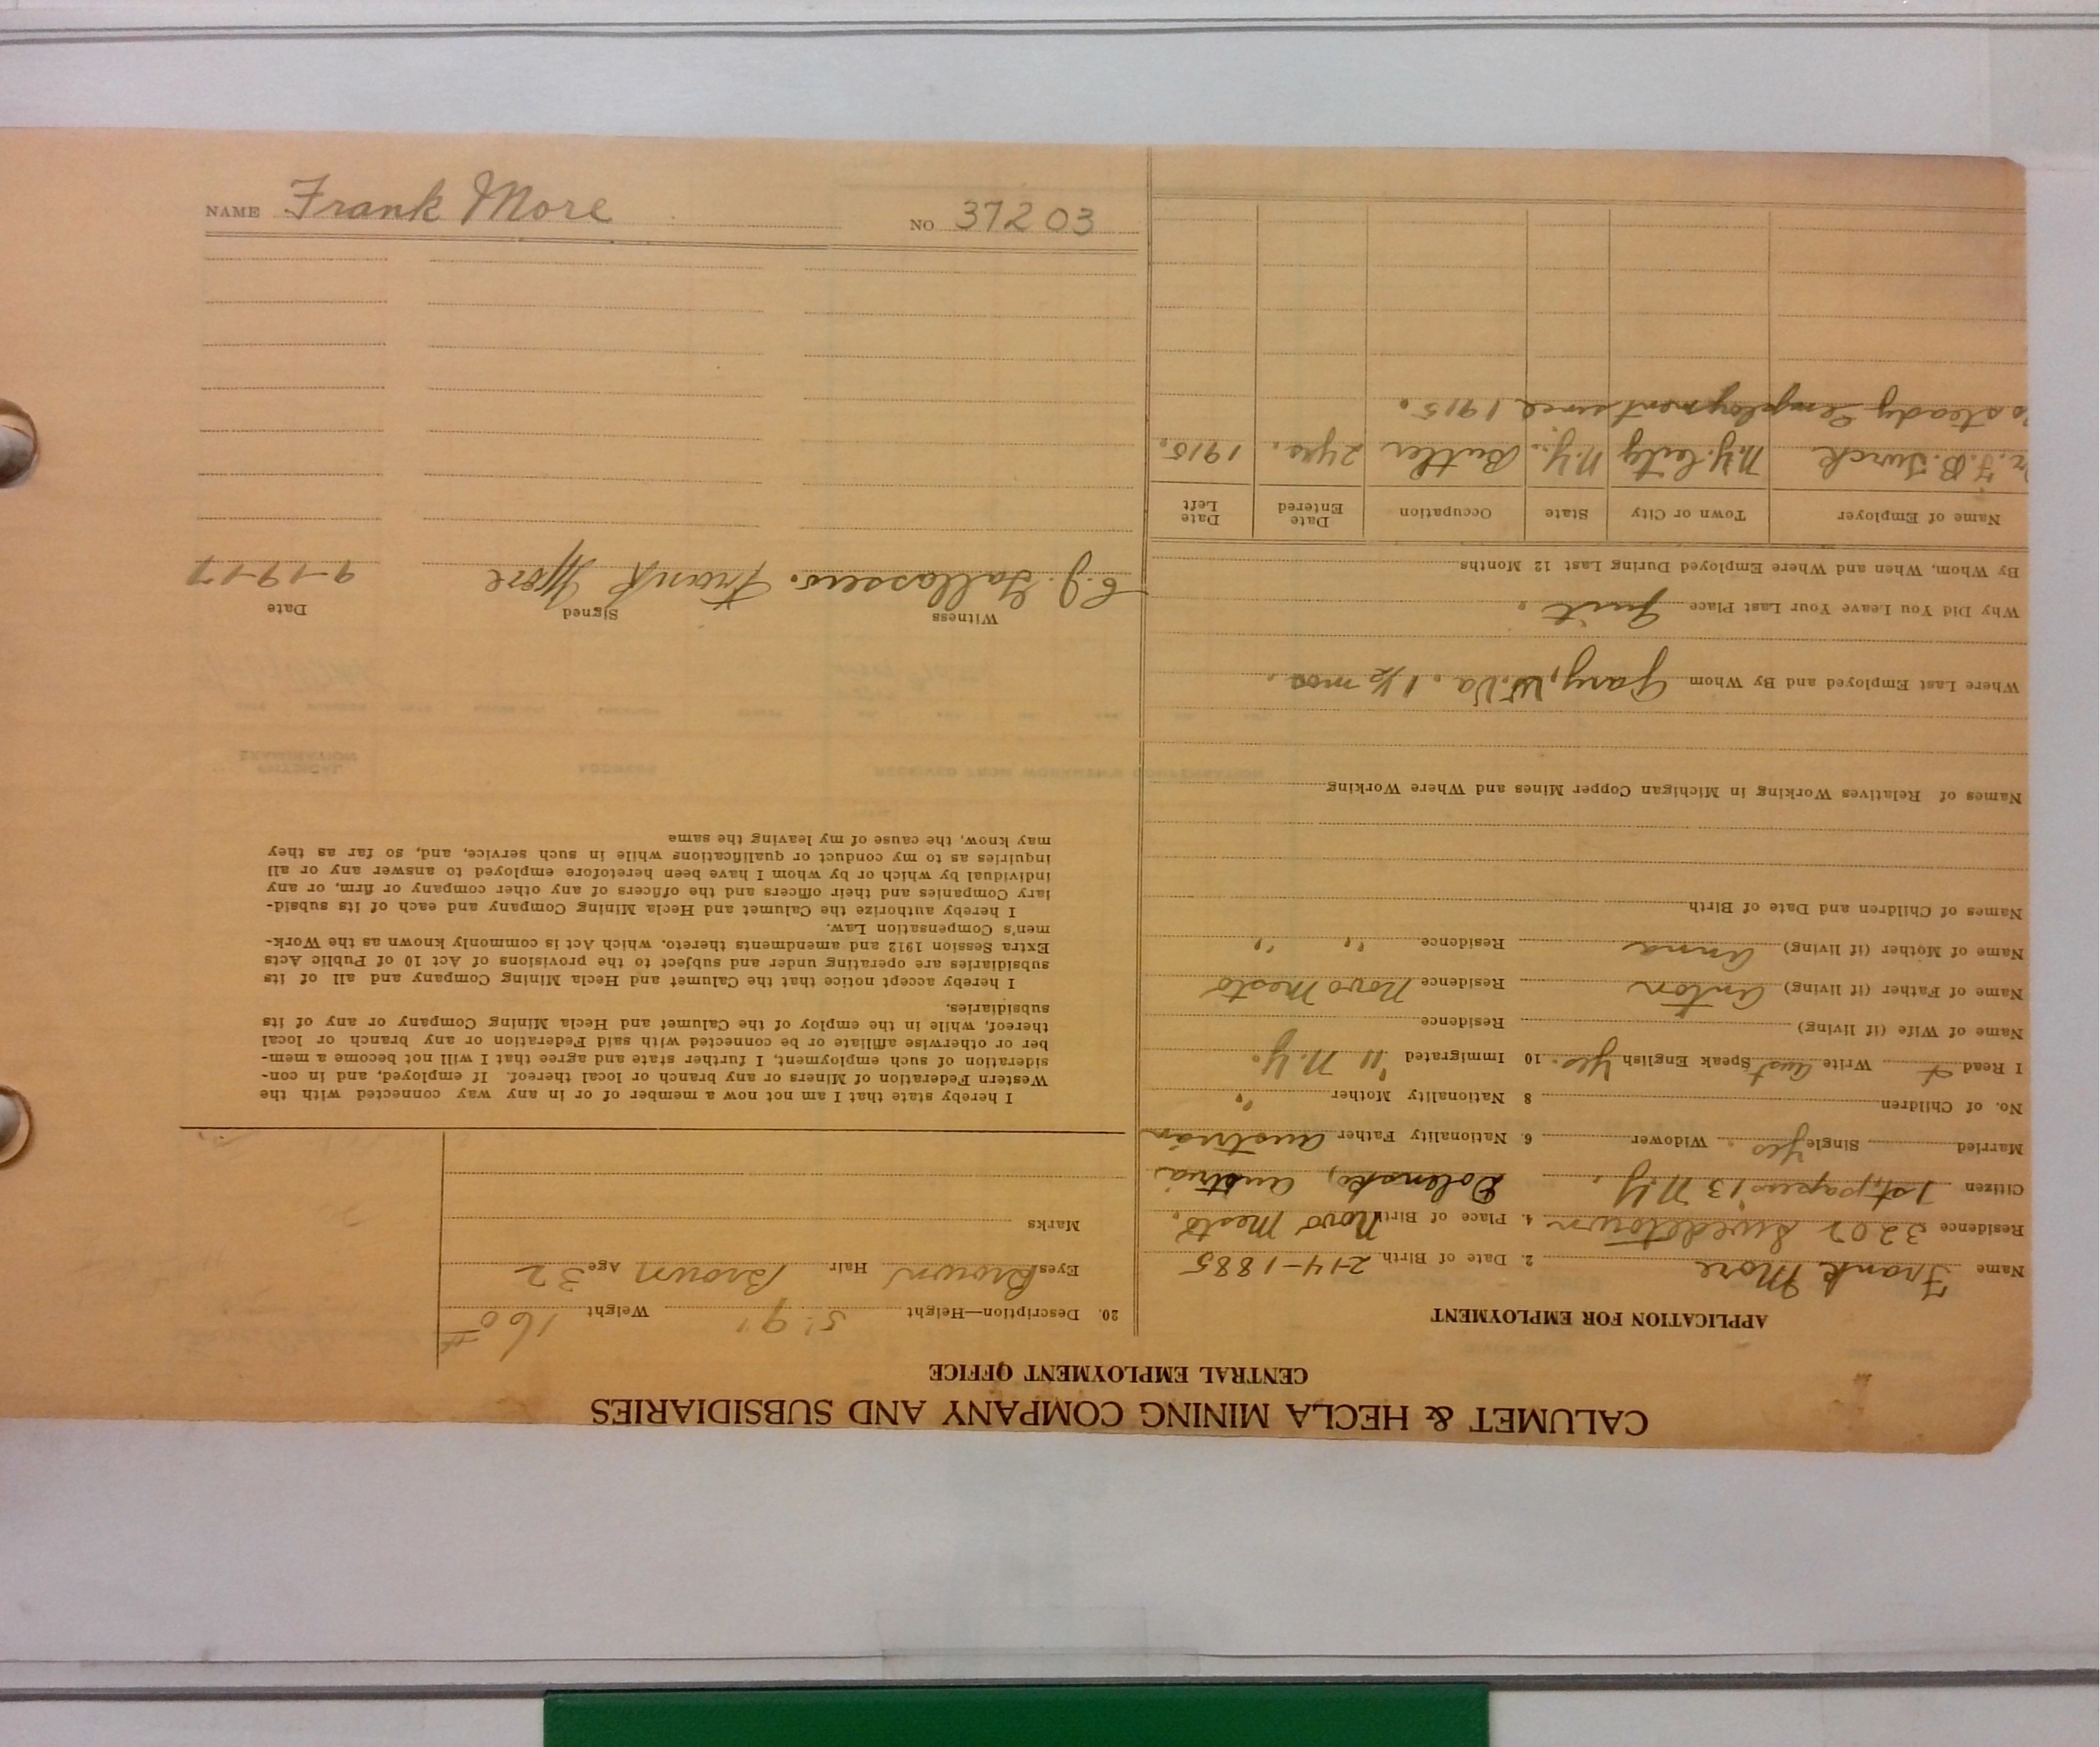 CALUMET & HECLA MINING COMPANY AND SUBSIDIARIES
CENTRAL EMPLOYMENT OFFICE
APPLICATION FOR EMPLOYMENT
Name Frank More 2. Date of Birth 2-14-1885
Residence 3202 Swedetown 4. Place of Birth Novo Mesto,
Citizen 1st papers 13 N.Y. Dolensko, Austria
Married Single Yes. Widower 6. Nationality Father Austrian
No. of Children 8 Nationality Mother " 
I Read & Write Aust Speak English Yes. 10 Immigrated '11 N.Y.
Name of Wife (if living) Residence
Name of Father (if living) Anton Residence Novo Mesto
Name of Mother (if living) Anna Residence " "
Names of Children and Date of Birth
Names of Relatives Working in Michigan Copper Mines and Where Working
Where Last Employed and By Whom Gary, W.Va. 1 1/2 mos.
Why Did You Leave Your Last Place Quit.
By Whom, When and Where Employed During Last 12 Months
Name of Employer Town or City State Occupation Date Entered Date Left
F. B. Turck N.Y. City N.Y. Butler 2 yrs. 1915.
steady employment since 1915.
20. Description—Height 5' 9" Weight 160 #
Eyes Brown Hair Brown Age 32
Marks
I hereby state that I am not now a member of or in any way connected with the
Western Federation of Miners or any branch or local thereof. If employed, and in con-
sideration of such employment, I further state and agree that I will not become a mem-
ber or otherwise affiliate or be connected with said Federation or any branch or local
thereof, while in the employ of the Calumet and Hecla Mining Company or any of its
subsidiaries.
I hereby accept notice that the Calumet and Hecla Mining Company and all of its
subsidiaries are operating under and subject to the provisions of Act 10 of Public Acts
Extra Session 1912 and amendments thereto, which Act is commonly known as the Work-
men's Compensation Law.
I hereby authorize the Calumet and Hecla Mining Company and each of its subsid-
iary Companies and their officers and the officers of any other company or firm, or any
individual by which or by whom I have been heretofore employed to answer any or all
inquiries as to my conduct or qualifications while in such service, and, so far as they
may know, the cause of my leaving the same
Witness Signed Date
Frank More 9-19-17
NAME Frank More NO 37203